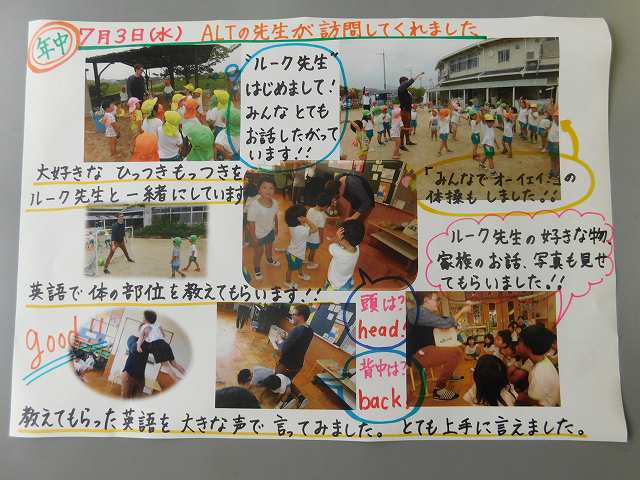 年中
7月3日(水) ALTの先生が訪問してくれました
"ルーク先生"
はじめまして!
みんな とても
お話したがって
います!!
大好きな ひっつきもっつきを
ルーク先生と一緒にしています
の
体操も しました!!
ルーク先生の好きな物、
家族のお話、写真も見せ
てもらいました!
英語で体の部位を教えてもらいます!!
good!!
頭は?
head!
背中は?
back!
教えてもらった英語を大きな声で言ってみました。とても上手に言えました。